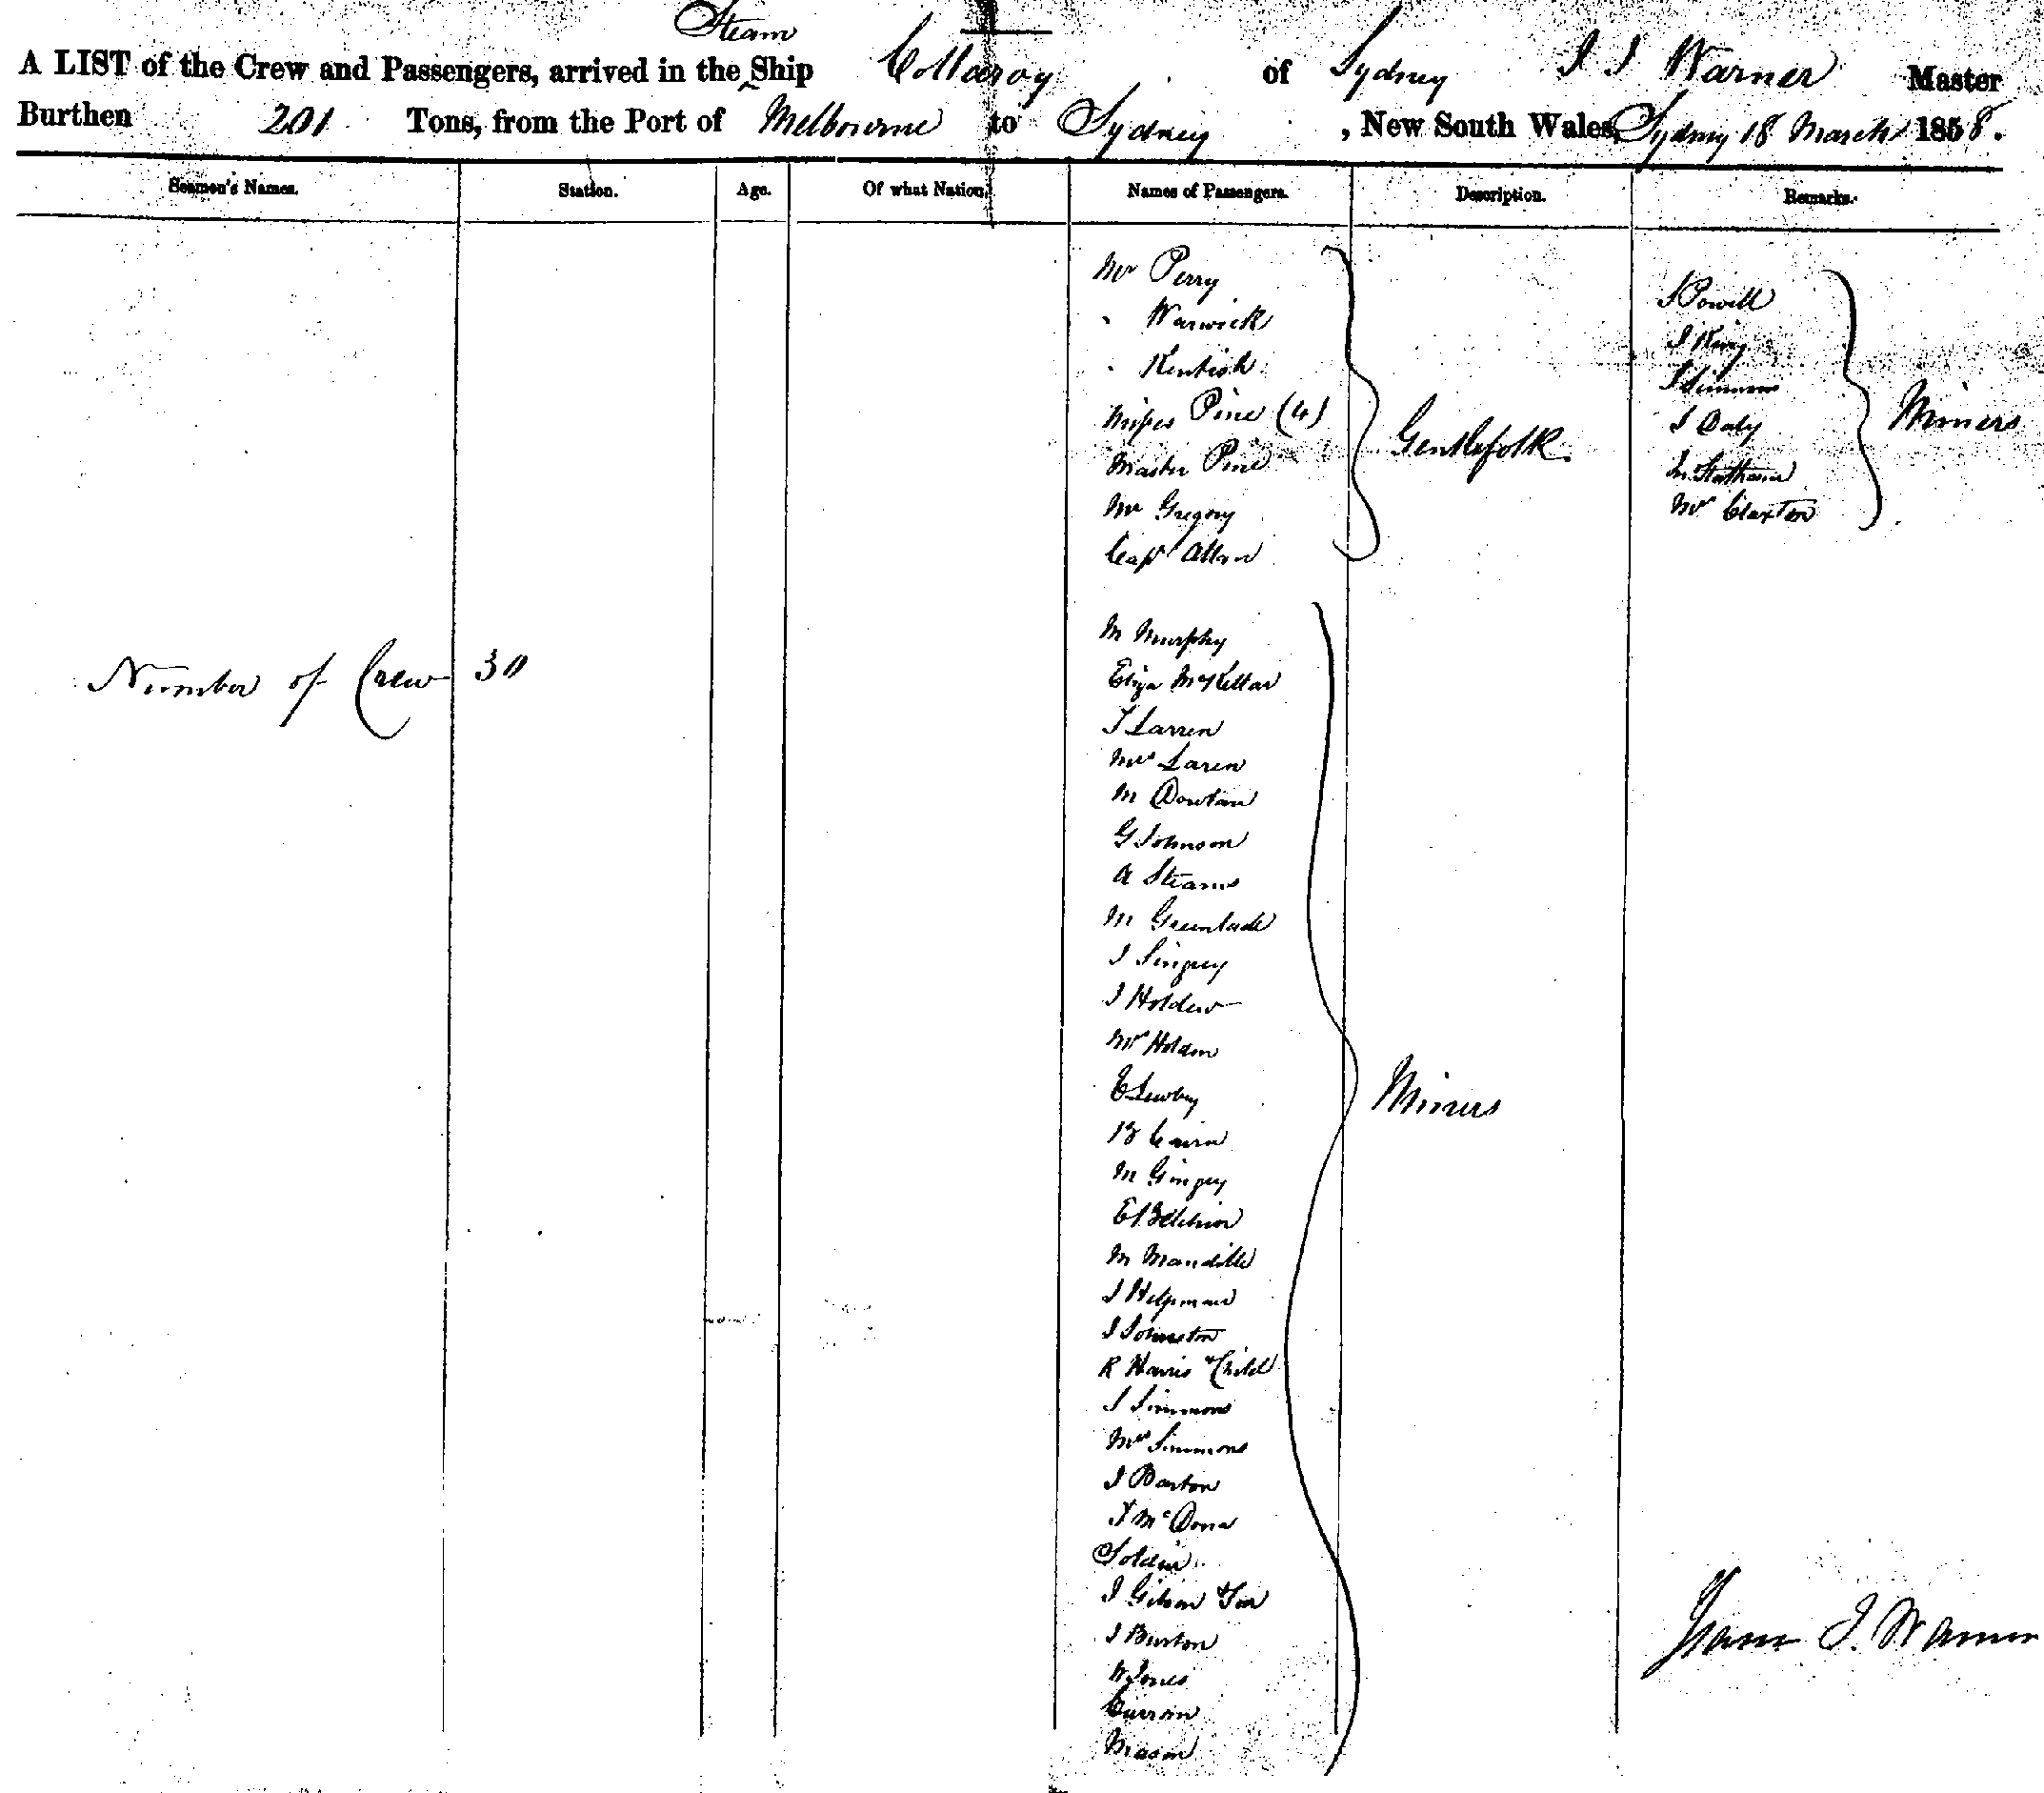 Steam
A LIST of the Crew and Passengers, arrived in the Ship Collaroy of Sydney I I Warner Master
Burthen 201 Tons, from the Port of Melbourne to Sydney, New South Wales, Sydney 18 March 1858.
Seamen's Names. Station. Age. Of what Nation. Names of Passengers. Description. Remarks.
Mr Perry
" Warwick
" Kentish
Misses Pine (4)
Master Pine
Mr Gregory
Capt Allan
Gentlefolk.
J Powell
J King
J Simmons
J Daly
Mr Claxton
Miners
Number of Crew 30
M Murphy
Eliza McKellar
T Larren
Mrs Laren
M Dowlan
G Johnson
A Stearns
M
J
J Holden
Mr Holden
E
B Cairn
M Gingey
E
M Mandille
J Helpman
J Johnston
R Harris & Child
J Simmons
Mrs Simmons
J Barton
T McDona
Soldier
J Gibson & Son
J Burton
W Jones
Curroin
Mason
Miners
J. Warner